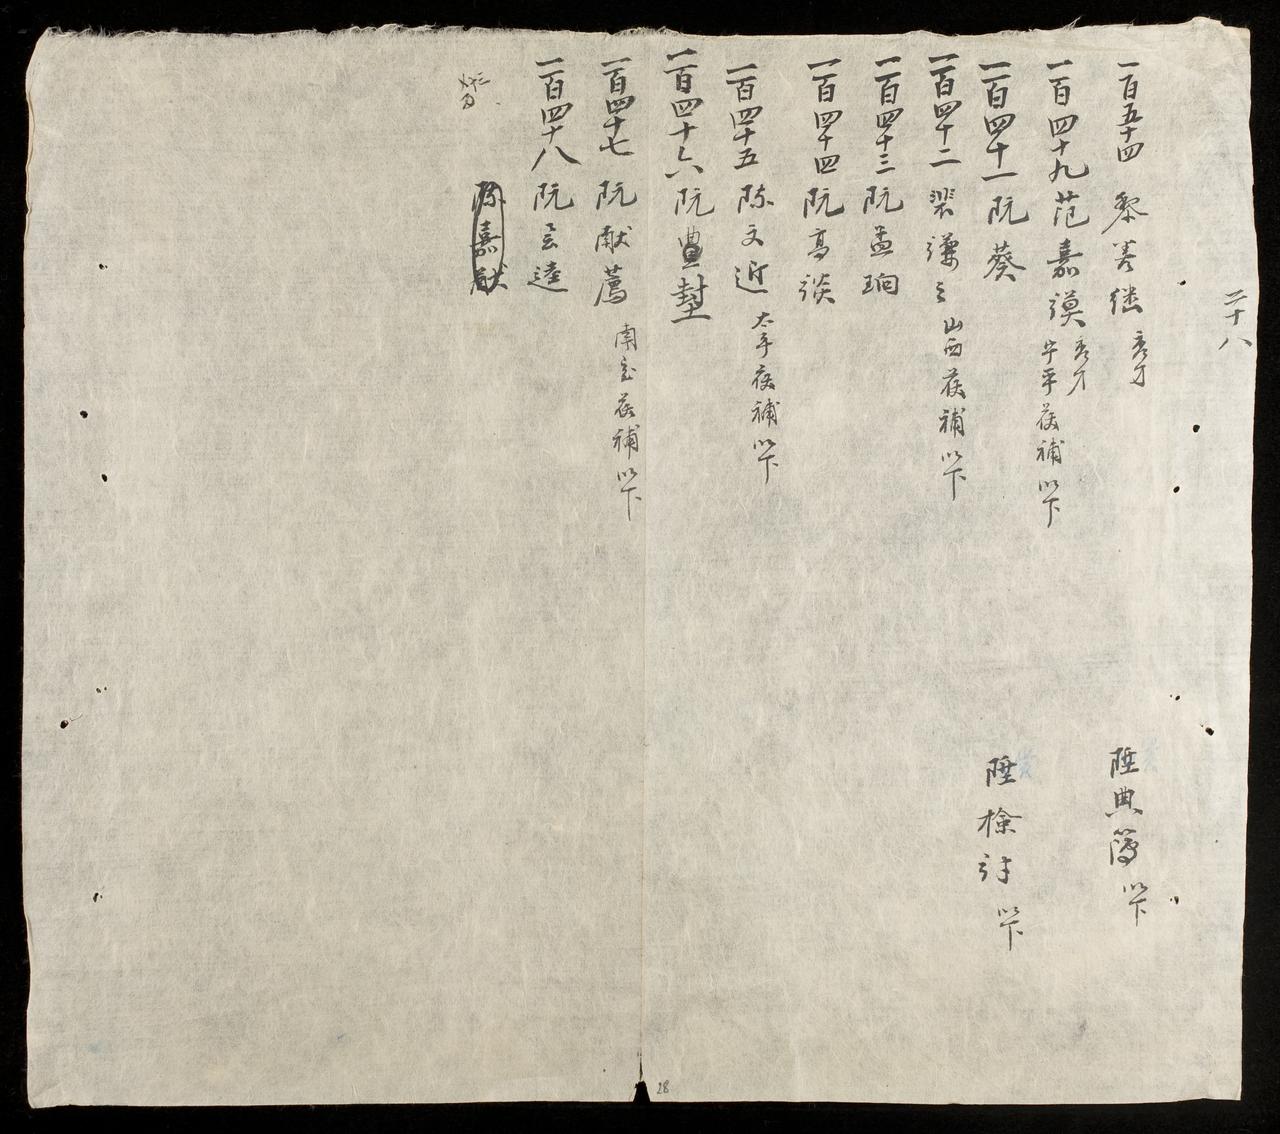 二十八
一百五十四 黎善继 秀才 陞典簿 以下
一百四十九 范嘉謨 秀才 宁平 後補 以下
一百四十一 阮葵 陞檢討 以下
一百四十二 裴謙之 山西 後補 以下
一百四十三 阮孟珦
一百四十四 阮高談
一百四十五 陈文近 太平 後補 以下
一百四十六 阮豊塟
一百四十七 阮献薦 南定 後補 以下
一百四十八 阮云逵
陈嘉猷
28